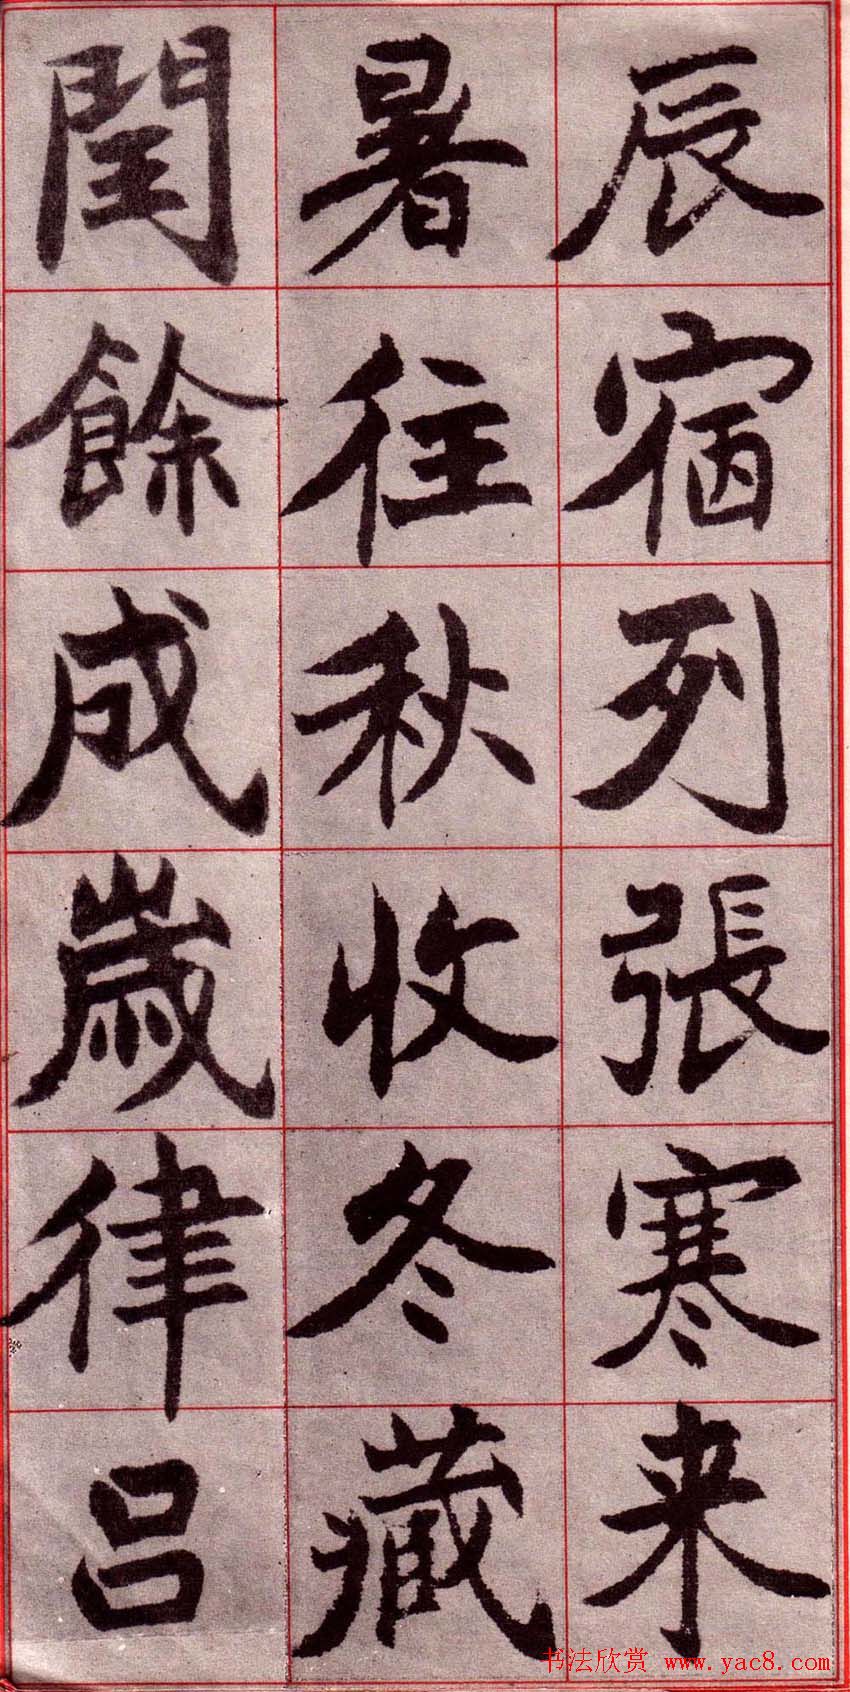 辰宿列張寒来
暑往秋收冬藏
閏餘成歲律吕
书法欣赏 www.yac8.com